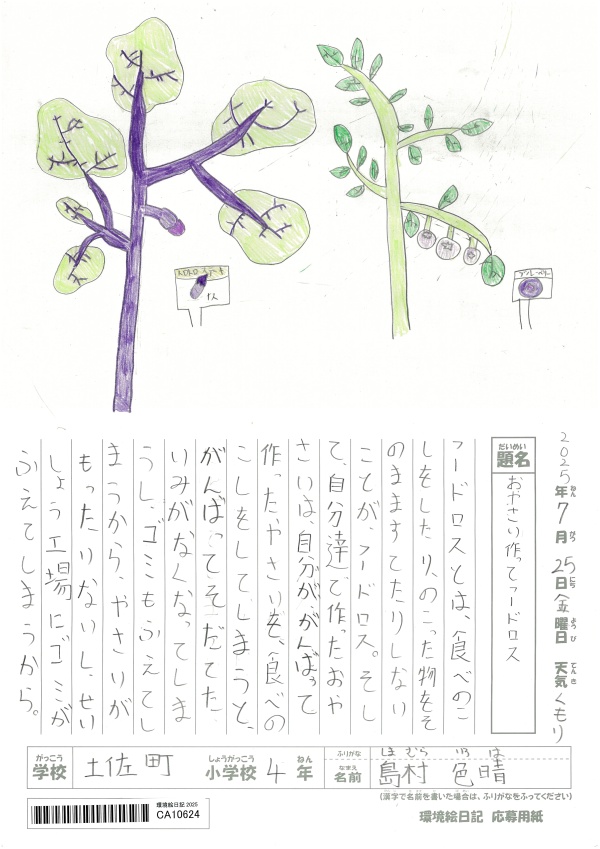 ブルーベリー
2025年7月25日金曜日 天気くもり
ねん がつ にち ようび てんき
だいめい
題名
おやさい作ってフードロス
フードロスとは、食べのこ
しをしたり、のこった物をそ
のまますてたりしない
ことが、フードロス。そし
て、自分達で作ったおや
さいは、自分が、がんばって
作ったやさいを、食べの
こしをしてしまうと、
がんばってそだてた
いみがなくなってしま
うし、ゴミもふえてし
まうから、やさいが
もったいないし、せい
しょう工場にゴミが
ふえてしまうから。
がっこう しょうがっこう ねん ふりがな
学校 土佐町 小学校 4年 なまえ 名前 島村 色晴
(漢字で名前を書いた場合は、ふりがなをふってください)
環境絵日記 2025
CA10624
環境絵日記 応募用紙